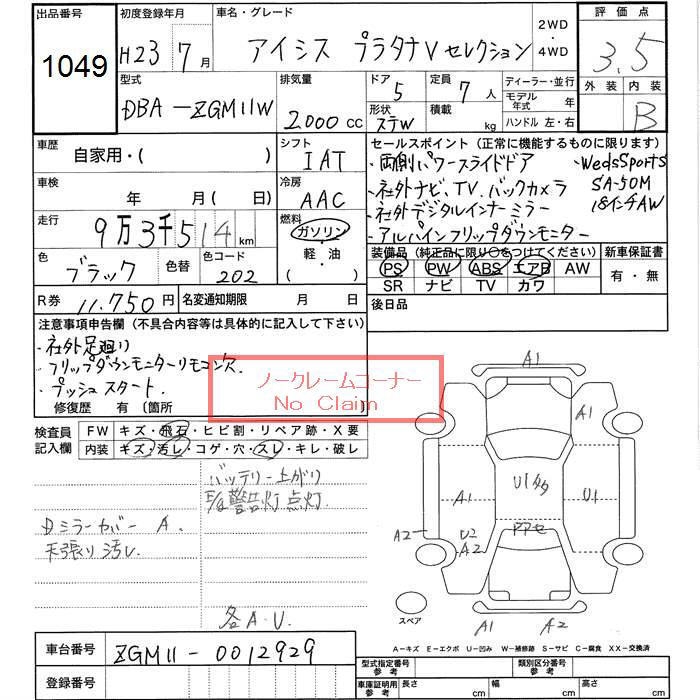 出品番号
1049
初度登録年月
H23 7月
車名・グレード
アイシス プラタナV セレクション
2WD
・
4WD
評価点
3.5
外装 内装
B
型式
DBA-ZGM11W
排気量
2.000cc
ドア
5
形状
ステW
定員
7人
積載
kg
ディーラー・並行
モデル年式 年
ハンドル 左・右
車歴
自家用・( )
シフト
IAT
車検
年 月( 日)
冷房
AAC
走行
9万3千514km
燃料
ガソリン
・
軽・油
( )
色
ブラック
色替
色コード
202
R券 11.750円
名変通知期限 月 日
セールスポイント (正常に機能するものに限ります)
・両側パワースライドドア
・社外ナビ、TV、バックカメラ
・社外デジタルインナーミラー
・アルパインフリップダウンモニター
・WedsSports
SA-50M
18インチAW
装備品 (純正品に限り○をつけてください)
PS PW ABS エアB AW
SR ナビ TV カワ
新車保証書
有・無
後日品
注意事項申告欄 (不具合内容等は具体的に記入して下さい)
・社外足廻り
・フリップダウンモニターリモコン欠.
・プッシュスタート.
修復歴 有 (箇所 )
ノークレームコーナー
No Claim
検査員
記入欄
FW キズ・飛石・ヒビ割・リペア跡・X要
内装 キズ・汚レ・コゲ・穴・スレ・キレ・破レ
バッテリー上がり
警告灯点灯.
Dミラーカバー A.
天張り汚レ
各A.U.
A1
A1
A1
U1多
U1
A2
U2
A2
アアセ
スペア
A1
A2
A-キズ E-エクボ U-凹み W-補修跡 S-サビ C-腐食 XX-交換済
車台番号
ZGM11-0012929
登録番号
型式指定番号
参考
類別区分番号
参考
車庫証明用
参考
長さ cm
幅 cm
高さ cm